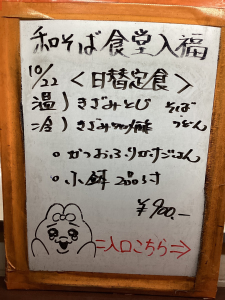 和そば食堂入福
10/22 <日替定食>
温) きざみとじ そば
冷) きざみ うどん
○かつおふりかけごはん
○小鉢2品付
¥900.-
⇒入口こちら⇒